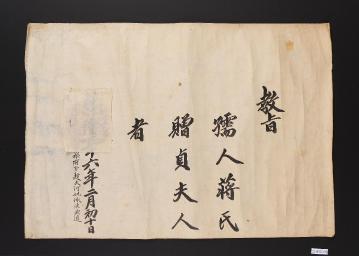 教旨
孺人蔣氏
贈貞夫人
者
十六年二月初十日